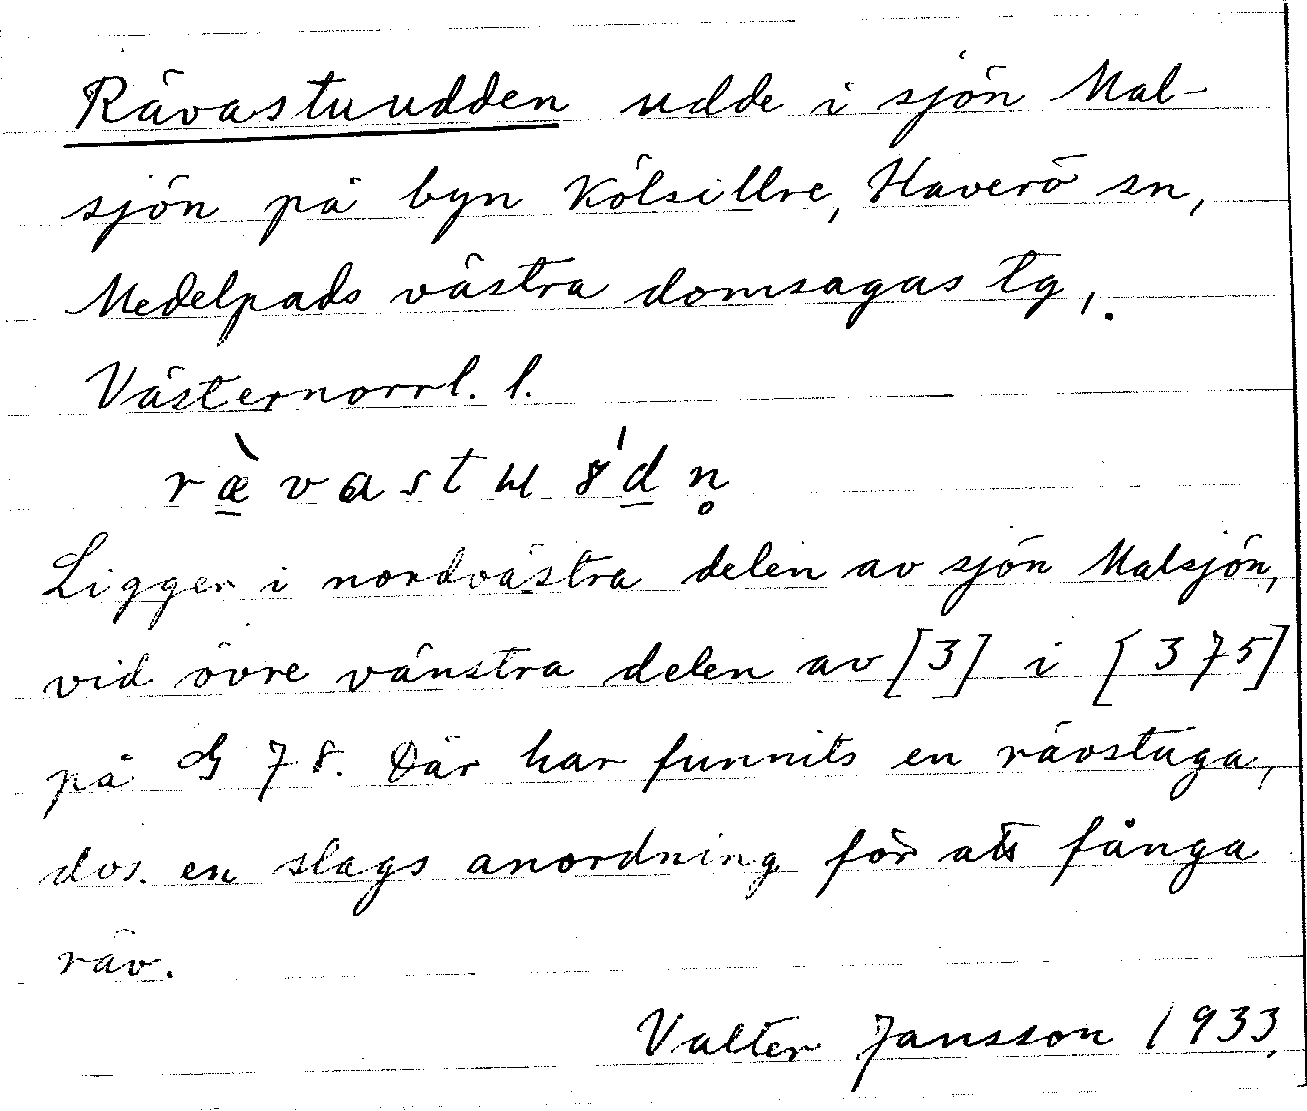 Rävastuudden udde i sjön Mal-
sjön på byn Kölsillre, Haverö sn,
Medelpads västra domsagas tg,.
Västernorrl. l.
ræ̀vastuꞷ́dn̥
Ligger i nordvästra delen av sjön Malsjön,
vid övre vänstra delen av [3] i [375]
på G 78. Där har funnits en rävstuga,
dvs. en slags anordning för att fånga
räv.
Valter Jansson 1933.